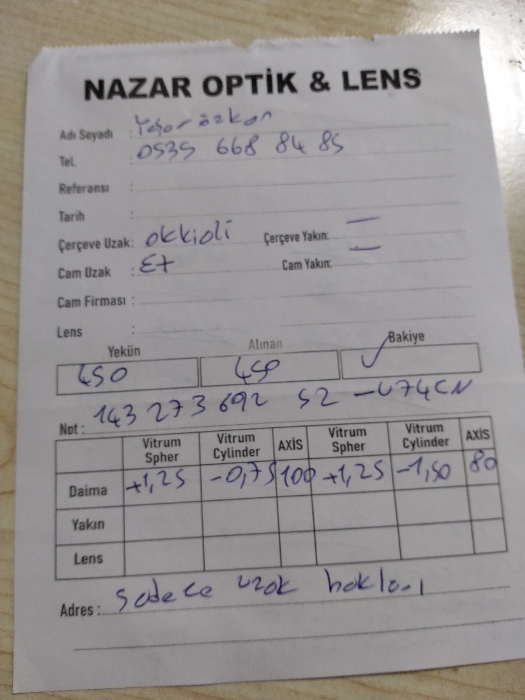 NAZAR OPTİK & LENS
Adı Soyadı : Yaşar özkan
Tel. : 0535 668 84 85
Referansı :
Tarih :
Çerçeve Uzak: okkioli Çerçeve Yakın: —
Cam Uzak : Ex Cam Yakın: —
Cam Firması :
Lens :
Yekün Alınan Bakiye
450 450 ✓
Not : 143 273 692 52
Vitrum Spher Vitrum Cylinder AXİS Vitrum Spher Vitrum Cylinder AXİS
Daima +1,25 -0,75 100 +1,25 -1,50 80
Yakın
Lens
Adres : Sadece uzak hakları